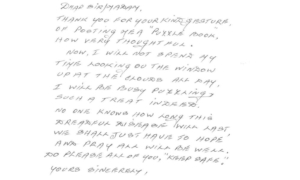 DEAR SIR/MADAM,
THANK YOU FOR YOUR KIND GESTURE,
OF POSTING ME A "PUZZLE BOOK,
HOW VERY THOUGHTFUL.
NOW, I WILL NOT SPEND MY
TIME LOOKING OUT THE WINDOW
UP AT THE CLOUDS ALL DAY.
I WILL BE BUSY PUZZLING,
SUCH A TREAT INDEED.
NO ONE KNOWS HOW LONG THIS
DREADFUL DISEASE WILL LAST,
WE SHALL JUST HAVE TO HOPE,
AND PRAY ALL WILL BE WELL.
DO PLEASE ALL OF YOU, "KEEP SAFE."
YOURS SINCERELY,